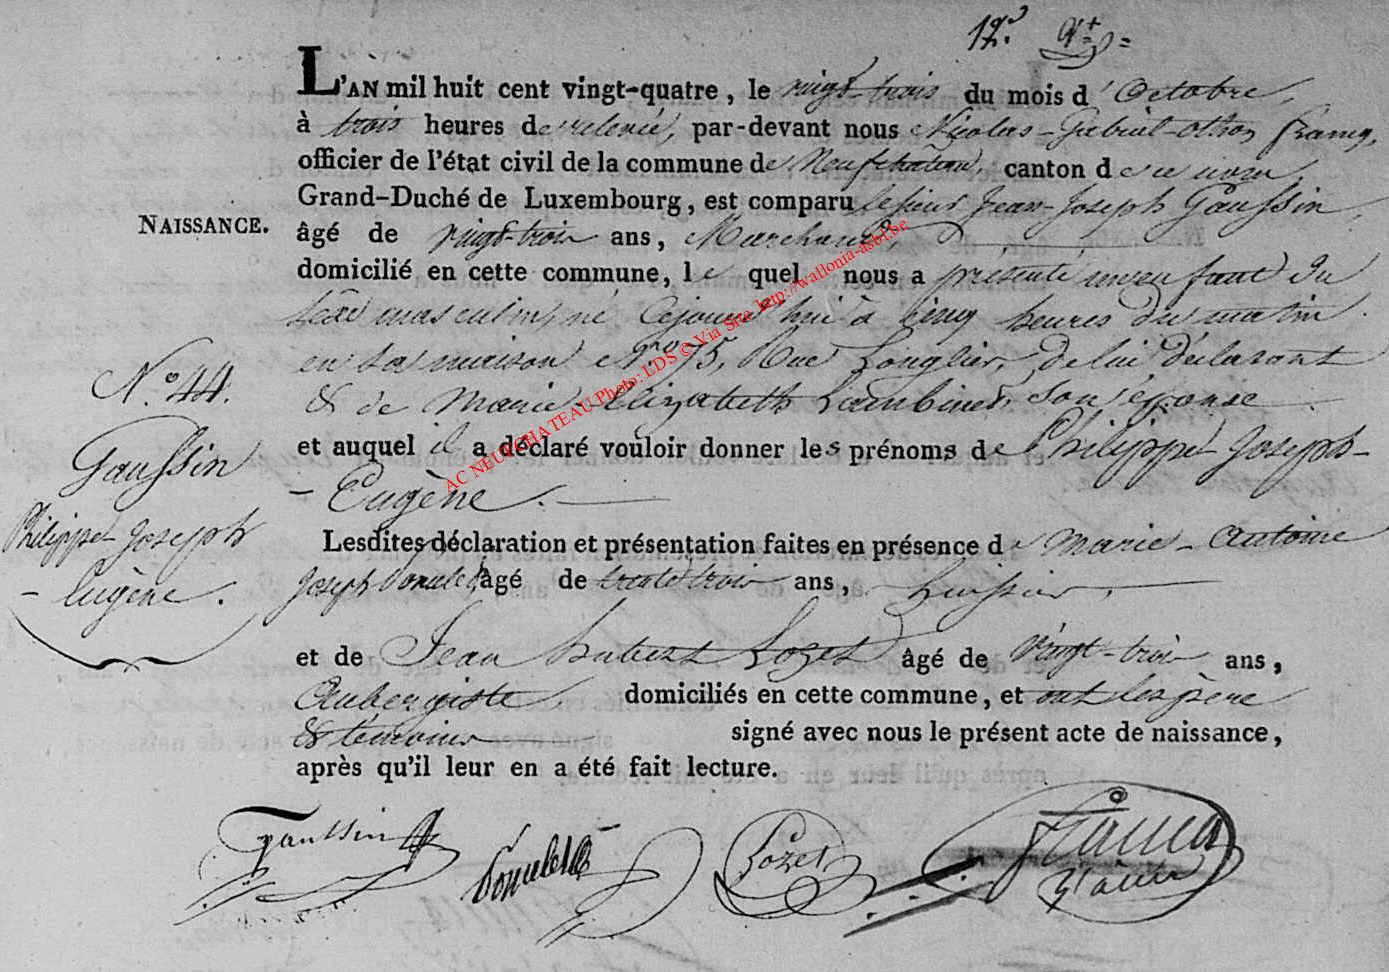 12.
L'AN mil huit cent vingt-quatre, le vingt-trois du mois d'Octobre,
à trois heures de relevée, par-devant nous Nicolas-Gabriel-othon França,
officier de l'état civil de la commune de Neufchateau, canton de ce nom,
Grand-Duché de Luxembourg, est comparu le sieur Jean-Joseph Gaussin,
NAISSANCE.
âgé de vingt-trois ans, Marchand,
domicilié en cette commune, lequel nous a présenté un enfant du
sexe masculin, né Cejourd'hui à cinq heures du matin
en sa maison N.° 75, Rue Longlier, de lui déclarant
& de Marie-Elizabeth Lambinet, son épouse
N.° 44.
Gaussin
Philippe Joseph
- Eugène.
et auquel il a déclaré vouloir donner les prénoms de Philippe Joseph-
- Eugène.
Lesdites déclaration et présentation faites en présence de Marie-Antoine
Joseph âgé de trente trois ans, huissier,
et de Jean hubert Pozet âgé de vingt-trois ans,
Aubergiste, domiciliés en cette commune, et ont les père
& témoins signé avec nous le présent acte de naissance,
après qu'il leur en a été fait lecture.
gaussin
Pozet
AC NEUFCHATEAU Photo: LDS © Via Site http://wallonia-asbl.be